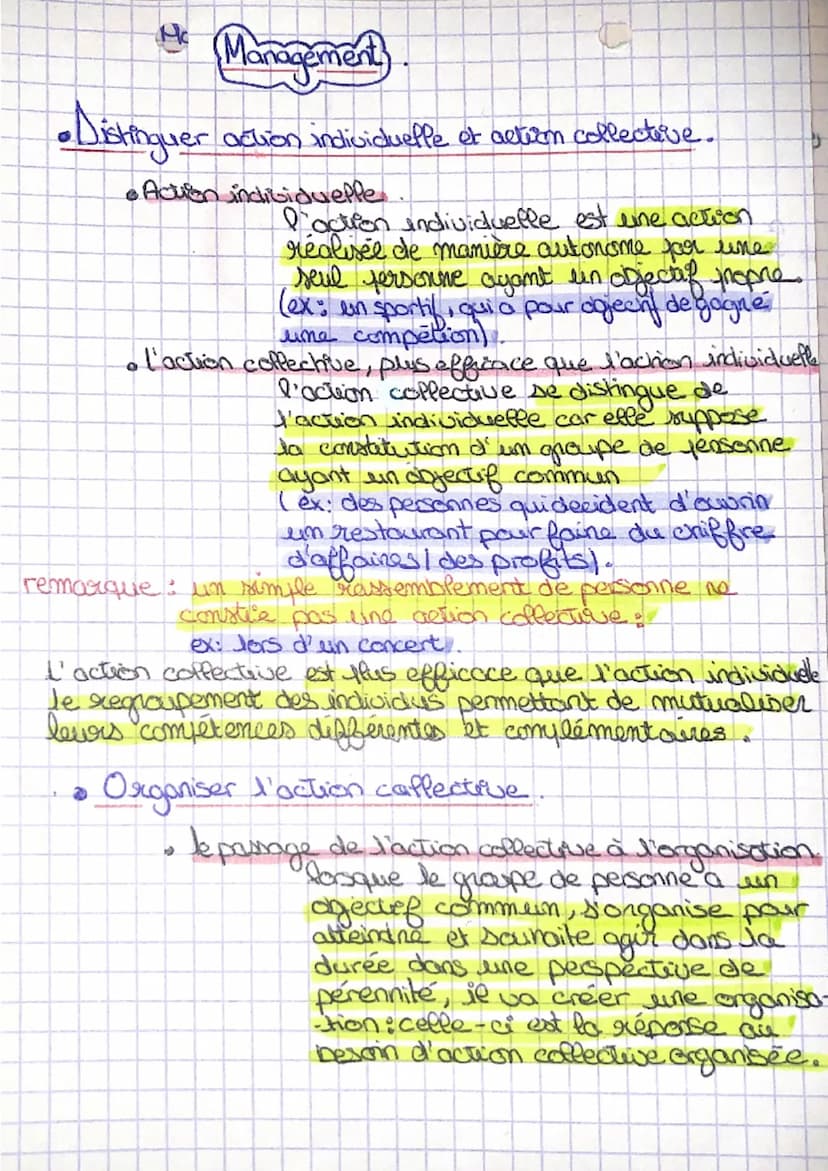 Management.
• Distinguer action individuelle et action collective.
• Action individuelle.
l'action individuelle est une action
réalisée de manière autonome par une
seul personne ayant un objectif propre.
(ex: un sportif, qui a pour ogjectif de gagné
une compétion).
• l'action collective, plus efficace que l'action individuelle
l'action collective se distingue de
l'action individuelle car elle suppose
la constitution d'um groupe de personne
ayant un objectif commun
(ex: des personnes qui decident d'ouvrir
um restaurant pour faire du chiffre
d'affaires / des profits).
remarque : un simple rassemblement de personne ne
constie pas une action collective :
ex: lors d'un concert).
L'action collective est plus efficace que l'action individuelle
le regroupement des individus permettant de mutualiser
leurs compétences différentes et complémentaires.
• Organiser l'action collective.
• le passage de l'action collective à l'organisation.
lorsque le groupe de personne a un
ogjectif commun, s'organise pour
atteindre et souhaite agir dans la
durée dans une perspective de
pérennité, il va créer une organisa-
-tion : celle-ci est la réponse au
besoin d'action collective organisée.